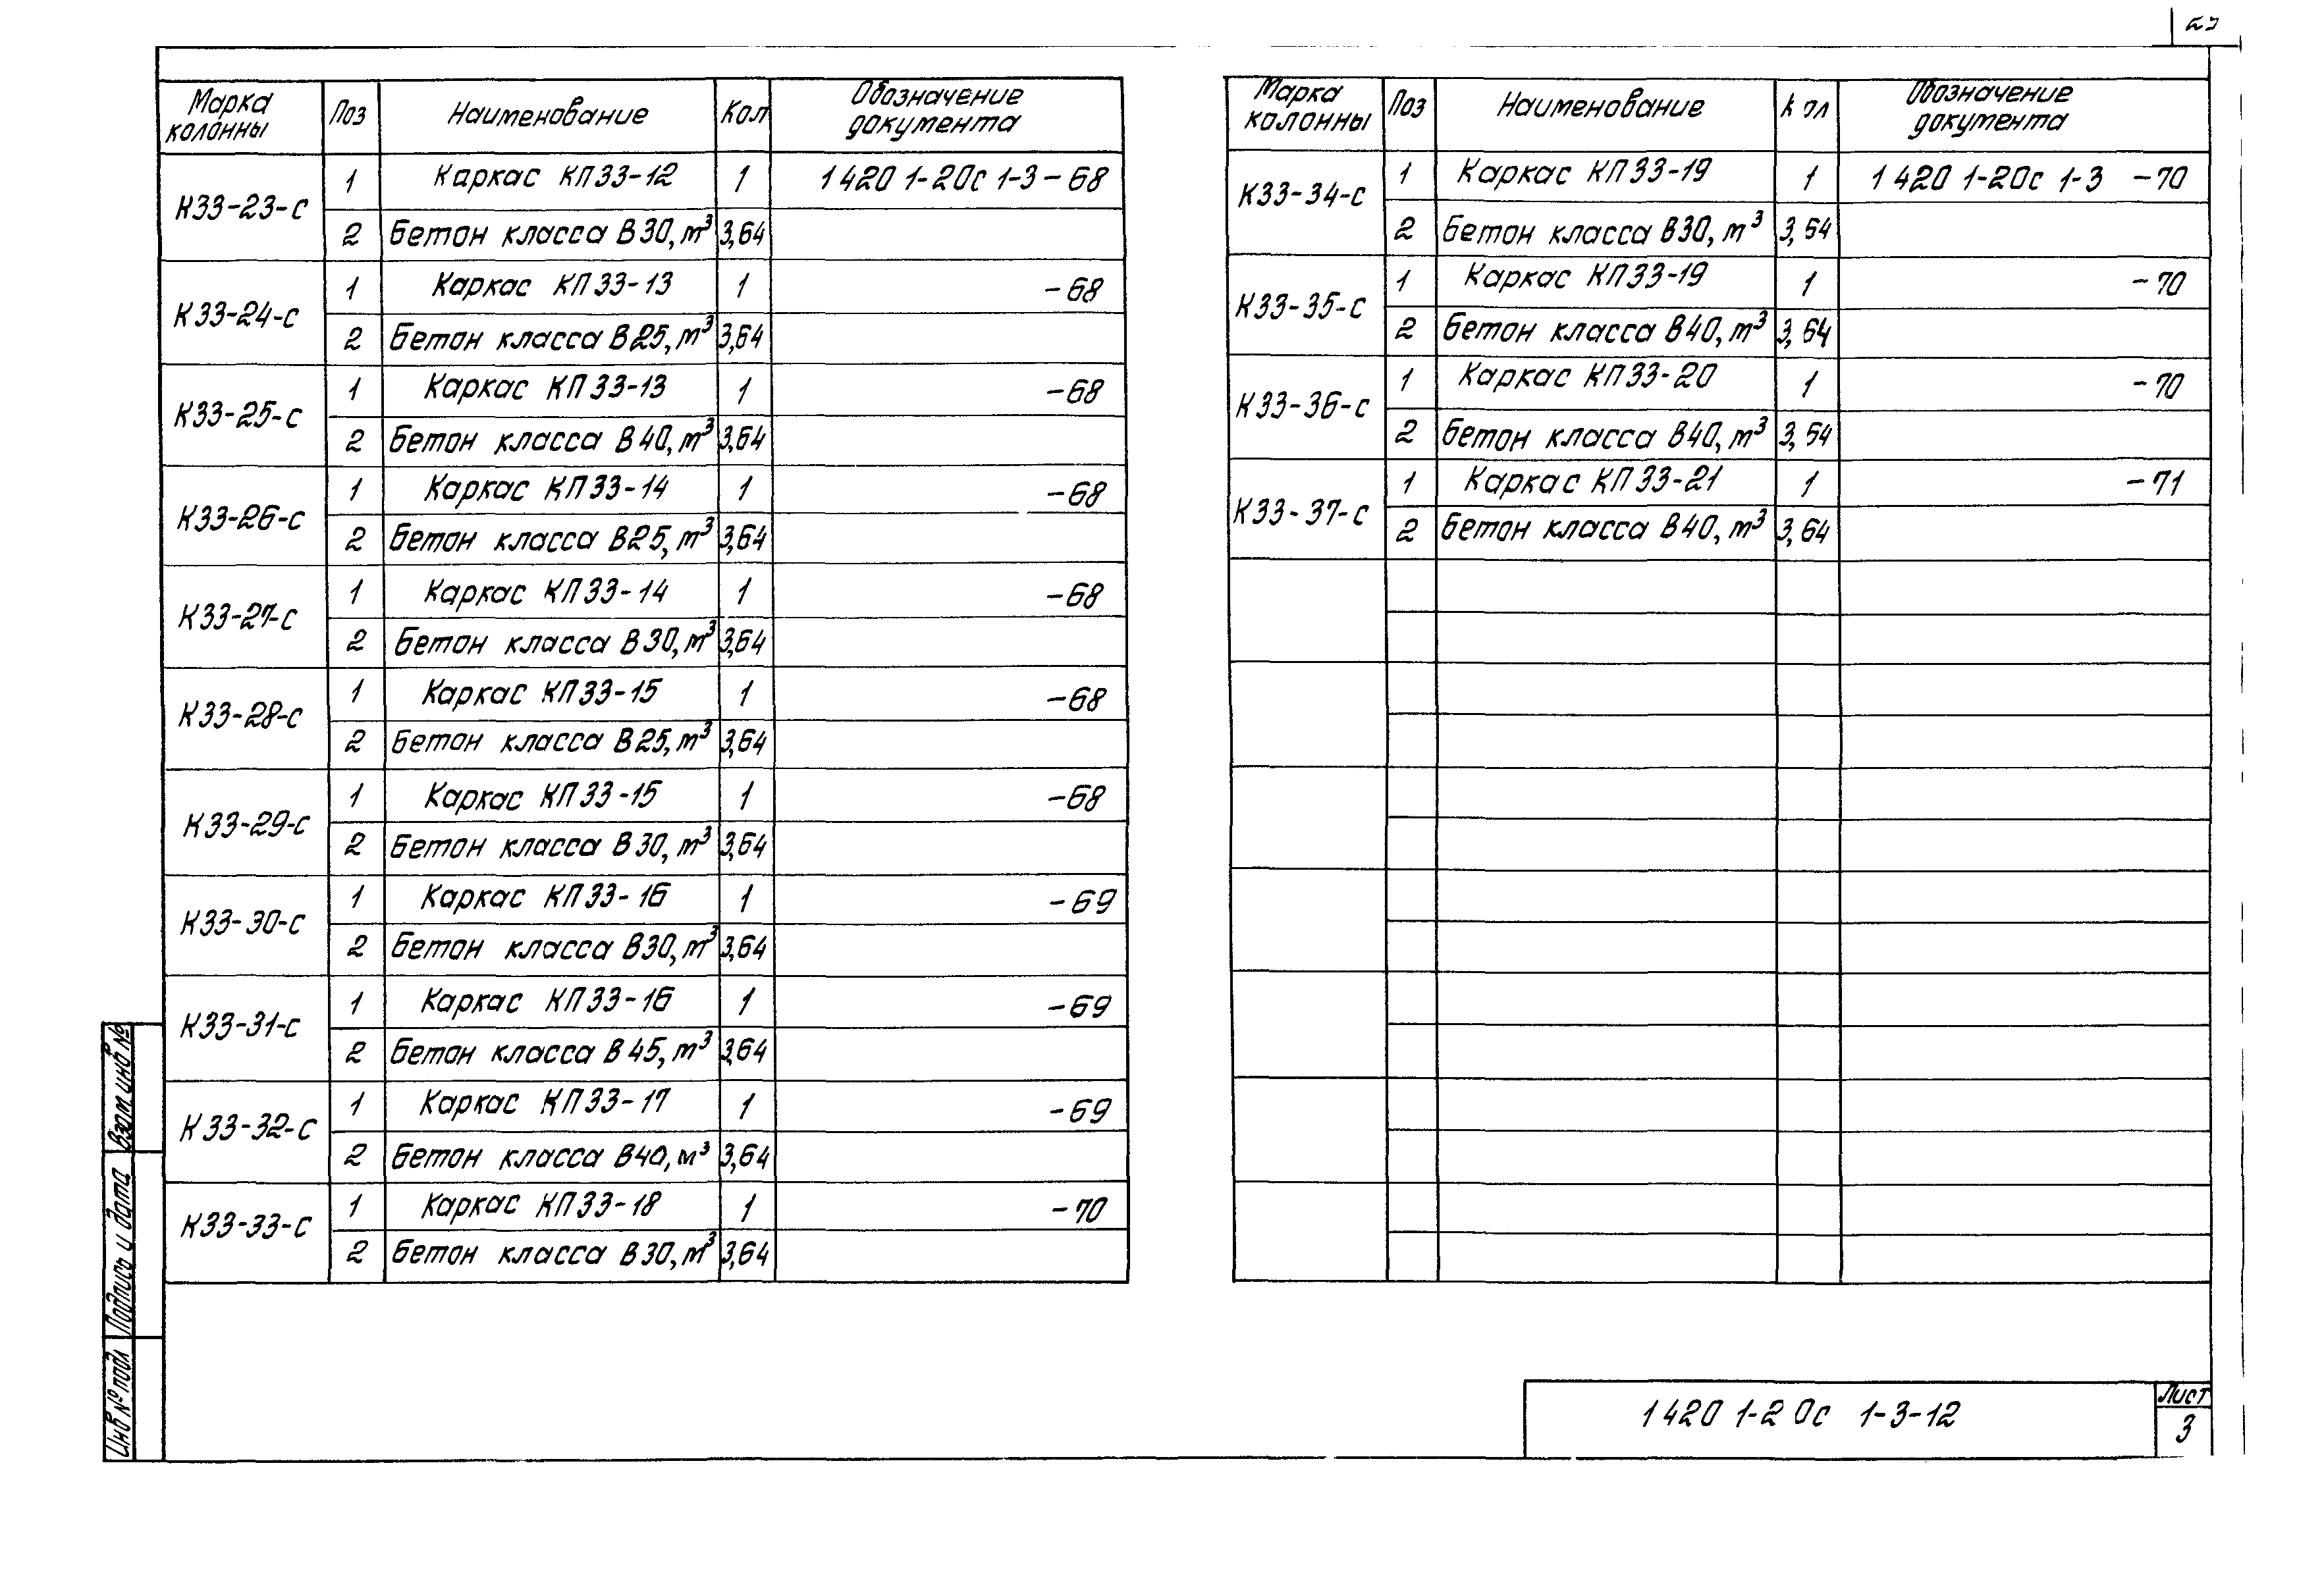 Марка колонны Поз Наименование Кол Обозначение документа
К33-23-с 1 Каркас КП33-12 1 1420 1-20с 1-3-68
2 Бетон класса В30, м³ 3,64
К33-24-с 1 Каркас КП33-13 1 -68
2 Бетон класса В25, м³ 3,64
К33-25-с 1 Каркас КП33-13 1 -68
2 Бетон класса В40, м³ 3,64
К33-26-с 1 Каркас КП33-14 1 -68
2 Бетон класса В25, м³ 3,64
К33-27-с 1 Каркас КП33-14 1 -68
2 Бетон класса В30, м³ 3,64
К33-28-с 1 Каркас КП33-15 1 -68
2 Бетон класса В25, м³ 3,64
К33-29-с 1 Каркас КП33-15 1 -68
2 Бетон класса В30, м³ 3,64
К33-30-с 1 Каркас КП33-16 1 -69
2 Бетон класса В30, м³ 3,64
К33-31-с 1 Каркас КП33-16 1 -69
2 Бетон класса В45, м³ 3,64
К33-32-с 1 Каркас КП33-17 1 -69
2 Бетон класса В40, м³ 3,64
К33-33-с 1 Каркас КП33-18 1 -70
2 Бетон класса В30, м³ 3,64
Марка колонны Поз Наименование Кол Обозначение документа
К33-34-с 1 Каркас КП33-19 1 1420 1-20с 1-3 -70
2 Бетон класса В30, м³ 3,64
К33-35-с 1 Каркас КП33-19 1 -70
2 Бетон класса В40, м³ 3,64
К33-36-с 1 Каркас КП33-20 1 -70
2 Бетон класса В40, м³ 3,64
К33-37-с 1 Каркас КП33-21 1 -71
2 Бетон класса В40, м³ 3,64
Взам инв №
Подпись и дата
Инв № подл
1420 1-20с 1-3-12
Лист
3